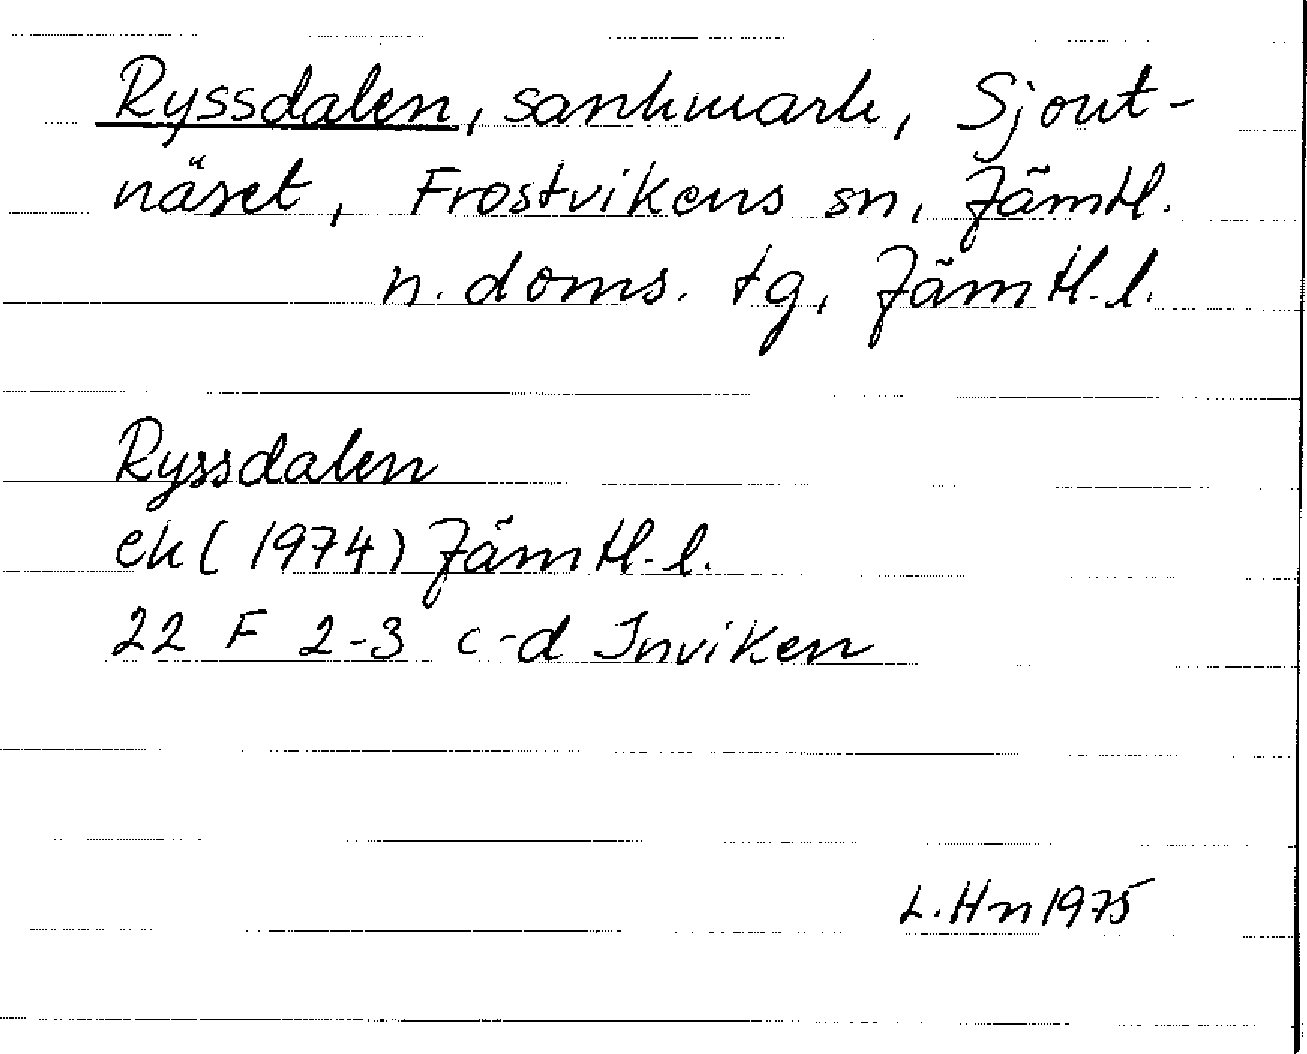 Ryssdalen, sankmark, Sjout-
näset, Frostvikens sn, Jämtl.
n. doms. tg, Jämtl. l.
Ryssdalen
ek (1974) Jämtl. l.
22 F 2-3 c-d Inviken
L. Hn 1975